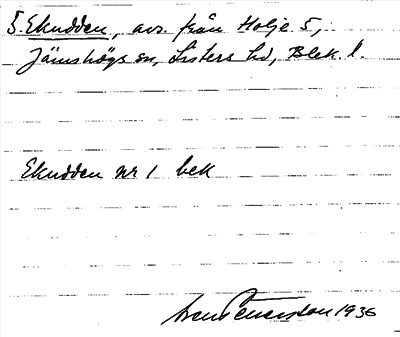 §. Ekudden, avs. från Holje 5,
Jämshögs sn, Listers hd, Blek. l.
Ekudden nr 1 bek
1936